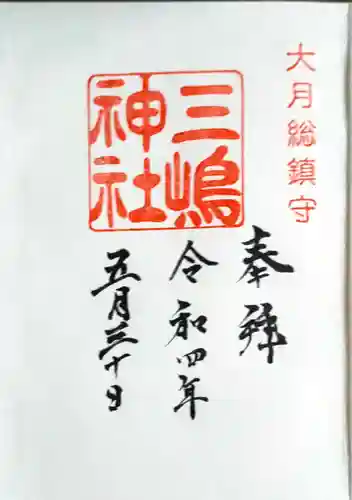 大月総鎮守
奉拝
三嶋
神社
令和四年
五月三十日